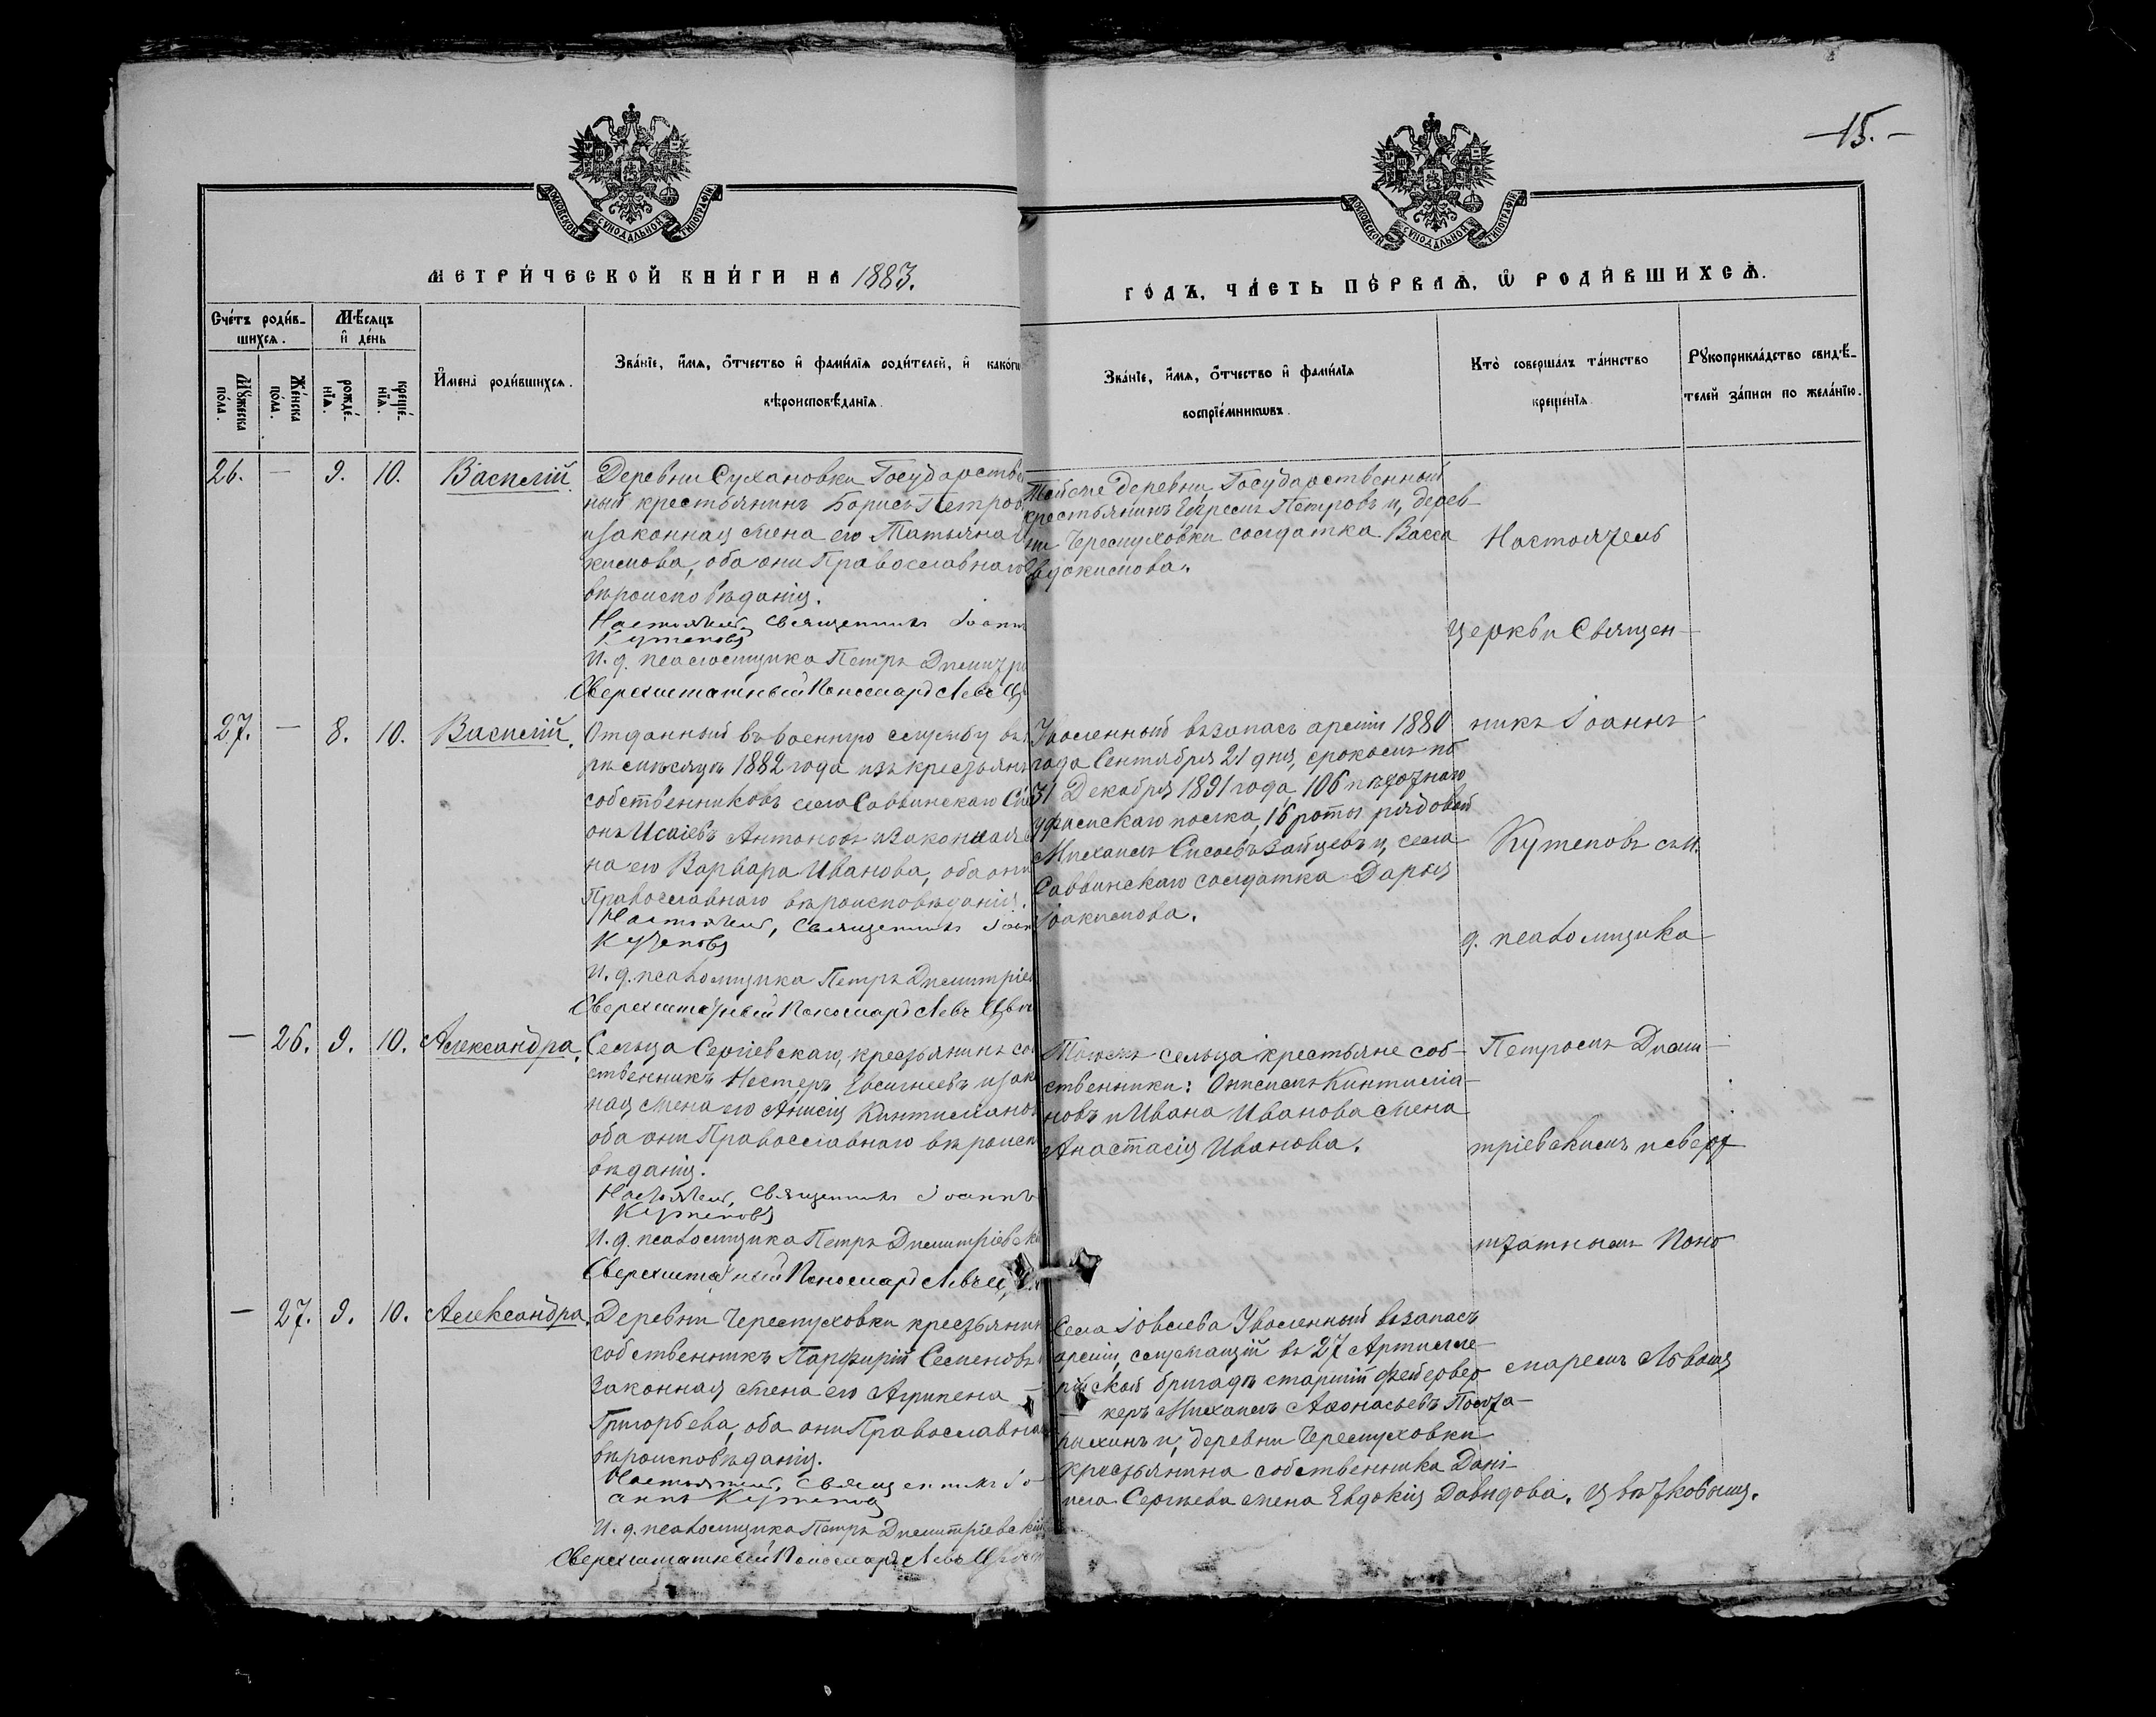 15.
МОСКОВСКОЙ СѴНОДАЛЬНОЙ ТИПОГРАФІИ
МОСКОВСКОЙ СѴНОДАЛЬНОЙ ТИПОГРАФІИ
МЕТРИ́ЧЕСКОЙ КНИ́ГИ НА 1883.
ГО́ДЪ, ЧА́СТЬ ПЕ́РВАѦ, Ѡ҆ РОДИ́ВШИХСѦ.
Сче́тъ роди́в-
шихсѧ.
Мꙋжеска по́ла.
Же́нска по́ла.
Мѣ́сѧцъ
и҆ де́нь
рожде́-
нїѧ.
креще́-
нїѧ.
И҆мена̀ роди́вшихсѧ.
Зва́нїе, и҆́мѧ, ѻ҆́тчество и҆ фами́лїѧ роди́телей, и҆ како́гѡ
вѣроисповѣ́данїѧ.
Зва́нїе, и҆́мѧ, ѻ҆́тчество и҆ фами́лїѧ
воспрїе́мникѡвъ.
Кто̀ соверша́лъ та́инство
креще́нїѧ.
Рꙋкоприкла́дство свидѣ́-
телей за́писи по жела́нїю.
26. — 9. 10. Василій.
Деревни Сухановки Государствен
ный крестьянинъ Борисъ Петров
и законная жена его Татьяна
кимова, оба они Православнаго
вѣроисповѣданія.
Настоятель, Священникъ Іоаннъ
Кутеповъ
И. д. псаломщика Петръ Димитрі
Сверхштатный Пономарь Левъ Цв
Тойже деревни Государственный
крестьянинъ Ефремъ Петровъ и, дерев
ни Черемуховки солдатка Васса
Евдокимова.
27. — 8. 10. Василій.
Отданный въ военную службу въ
рѣ мѣсяцѣ 1882 года изъ крестьянъ
собственниковъ села Саввинскаго
онъ Исаіевъ Антоновъ и законная
на его Варвара Иванова, оба они
Православнаго вѣроисповѣданія.
Настоятель, Священникъ Іоан
Кутеповъ
И. д. псаломщика Петръ Димитріев
Сверхштатный Пономарь Левъ Цвѣ
Уволенный въ запасъ арміи 1880
года Сентября 21 дня, срокомъ по
31 Декабря 1891 года, 106 пѣхотнаго
уфимскаго полка, 16 роты рядовой
Михаилъ Сисоевъ Зайцевъ и, села
Саввинскаго солдатка Дарья
Іоакимова.
— 26. 9. 10. Александра.
Сельца Сергіевскаго, крестьянинъ соб
ственникъ Нестеръ Евсигнеевъ и закон
ная жена его Анисія Кинтиліанов
оба они Православнаго вѣроиспо
вѣданія.
Настоятель, Священникъ Іоаннъ
Кутеповъ
И. д. псаломщика Петръ Димитріевск
Сверхштатный Пономарь Левъ Ц
Тогоже сельца крестьяне соб-
ственники: Онисимъ Кинтилia-
новъ и Ивана Иванова жена
Анастасія Иванова.
— 27. 9. 10. Александра.
Деревни Черемуховки крестьянин
собственникъ Парфирій Семеновъ
законная жена его Агрипена —
Григорьева, оба они Православна
вѣроисповѣданія.
Настоятель, Священникъ Іо-
аннъ Кутеповъ
И. д. псаломщика Петръ Димитріевскій
Сверхштатный Пономарь Левъ Цвѣт
Села Іовлева Уволенный въ запасъ
арміи, служащій въ 27 Артилле-
рійской бригадѣ старшій фейервер
керъ Михаилъ Афонасьевъ
и, деревни Черемуховки
крестьянина собственника Дані-
ила Сергѣева жена Евдокія Давидова.
Настоятель
церкви Священ-
никъ Іоаннъ
Кутеповъ съ и.
д. псаломщика
Петромъ Дими-
тріевскимъ и сверх
штатнымъ Поно
маремъ Львомъ
Цвѣтковымъ.